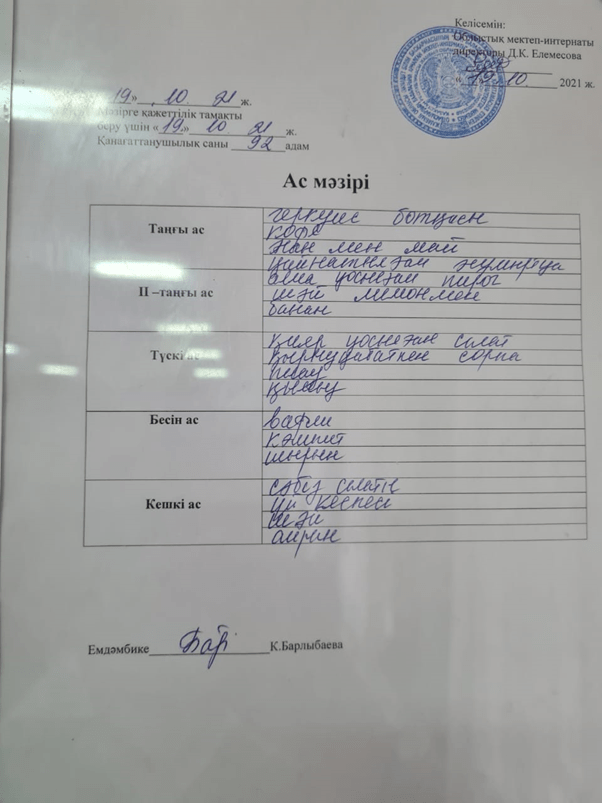 Келісемін:
Облыстық мектеп-интернаты
директоры Д.К. Елемесова
«19» 10 2021 ж.
«19» 10 21 ж.
Мәзірге қажеттілік тамақты
беру үшін «19» 10 21 ж.
Қанағаттанушылық саны 92 адам
Ас мәзірі
Таңғы ас
геркулес ботқасы
кофе
нан мен май
қайнатылған жұмыртқа
ІІ –таңғы ас
алма қосылған пирог
шәй лимонмен
банан
Түскі ас
қияр қосылған салат
қырыққабатпен сорпа
палау
қысыу
Бесін ас
вафли
кәмпит
шырын
Кешкі ас
сәбіз салаты
үй кеспесі
шәй
айран
Емдәмбике К.Барлыбаева